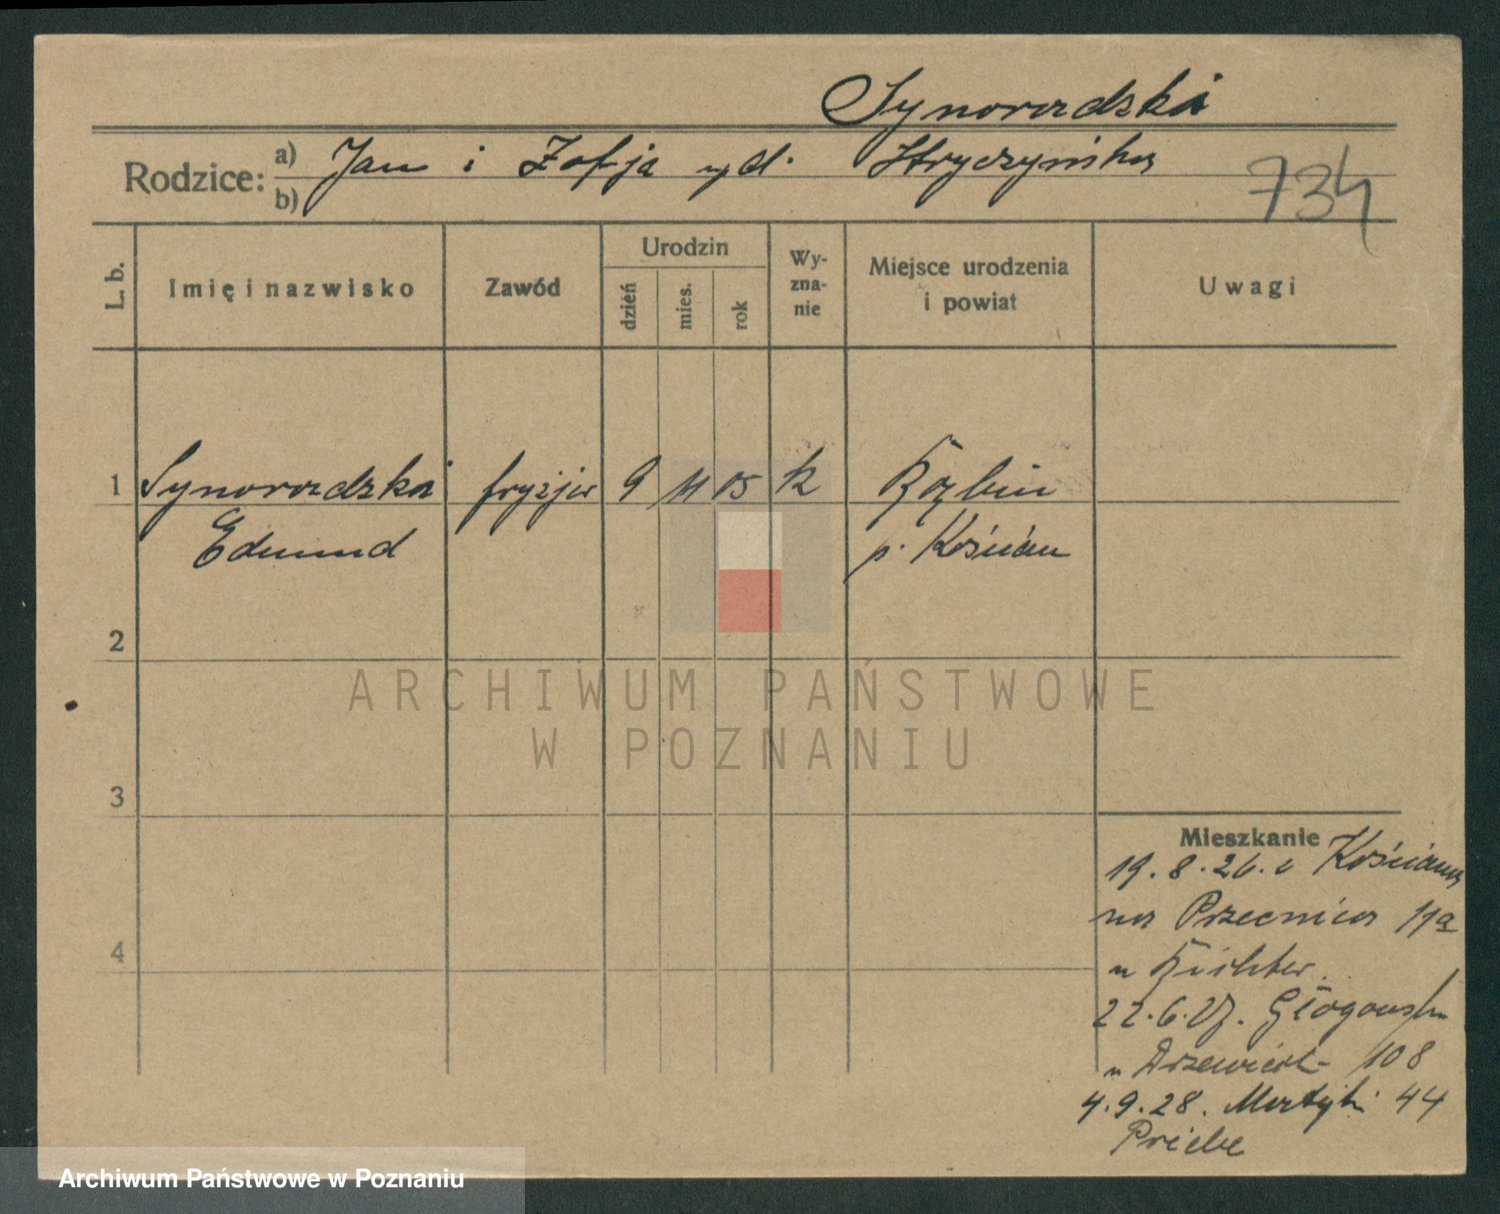 Synoradzki
Rodzice: a) Jan i Zofja ud. Stryczyńska
b)
734
L. b. Imię i nazwisko Zawód Urodzin dzień mies. rok Wyznanie Miejsce urodzenia i powiat Uwagi
1 Synoradzki fryzjer 9 11 05 k
Edmund p. Kościan
2
3
4
Mieszkanie
19.8.26. z Kościana
na Przecznica 11a
u Richter.
22.6.27. Głogowska
u 108
4.9.28. Matejki 44
Priebe
ARCHIWUM PAŃSTWOWE
W POZNANIU
Archiwum Państwowe w Poznaniu